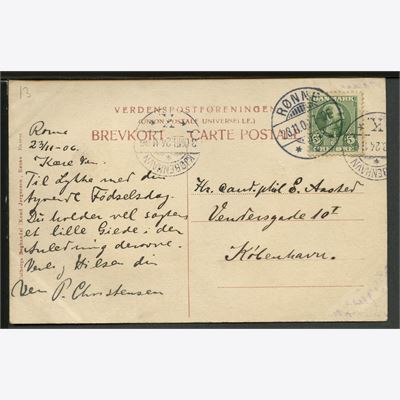 13
VERDENSPOSTFORENINGEN
(UNION POSTALE UNIVERSELLE.)
BREVKORT - CARTE POSTALE
DANMARK
5 ØRE 5
RØNNE
23.11.0
KJØBENHAVN
K
KJØBENHAVN
K
Rønne
23/11-06.
Kære Ven.
Til Lykke med din
Fødselsdag.
Du holder vel
et lille Gilde i den
Anledning
Hilsen din
Ven P. Christensen
Hr. cand. phil E. Aasted
Vendersgade 10
København.